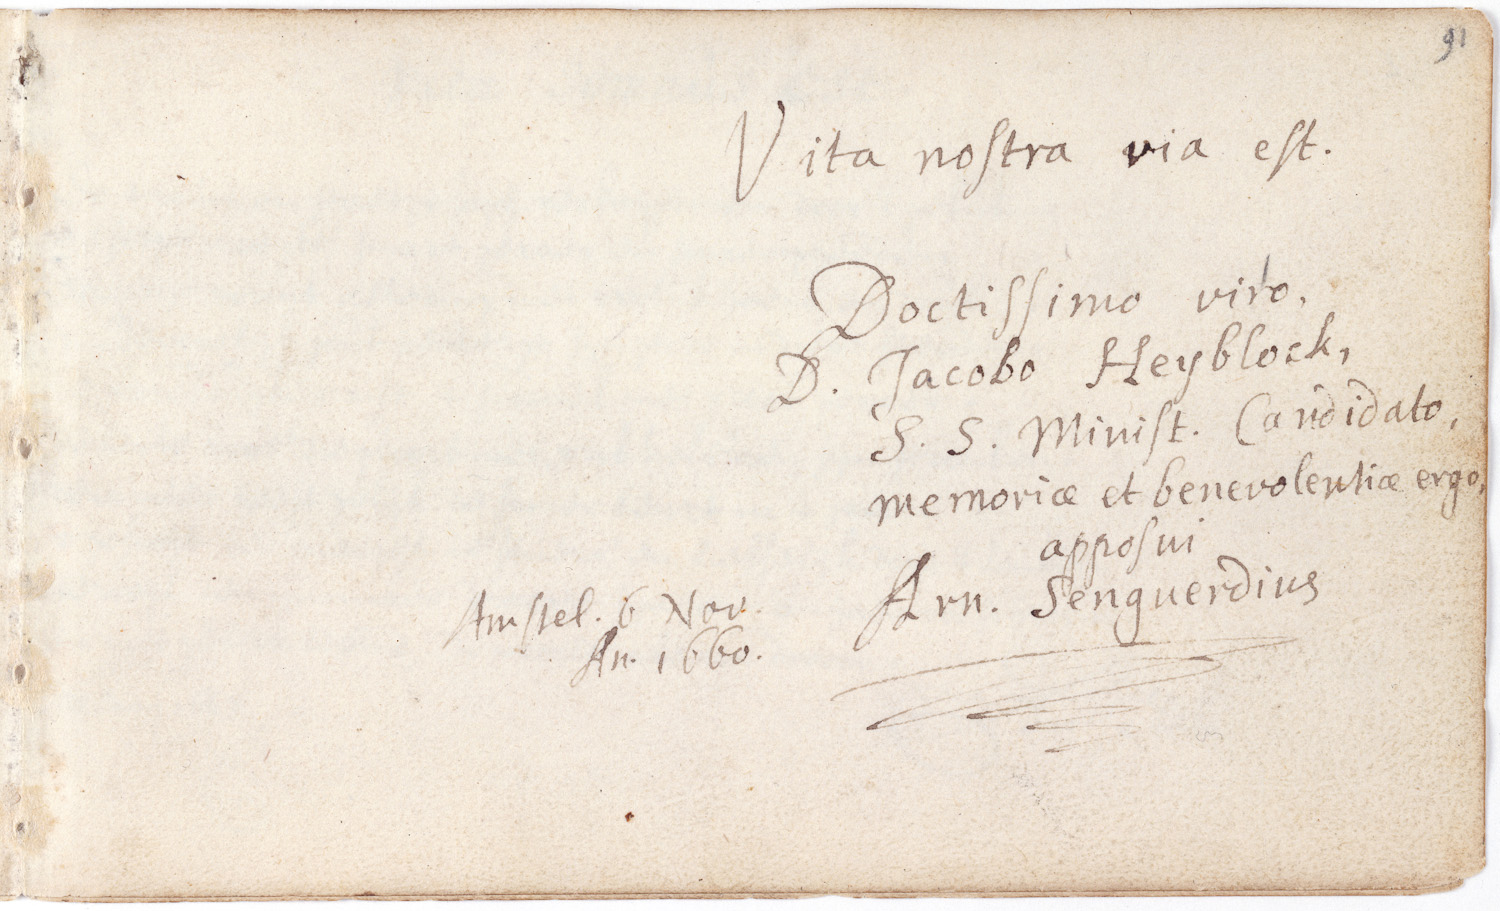 91
Vita nostra via est.
Doctissimo viro,
D. Jacobo Heyblock,
S. S. Minist. Candidato,
memoriæ et benevolentiæ ergo,
apposui
Arn. Senguerdius
Amstel. 6 Nov.
An. 1660.